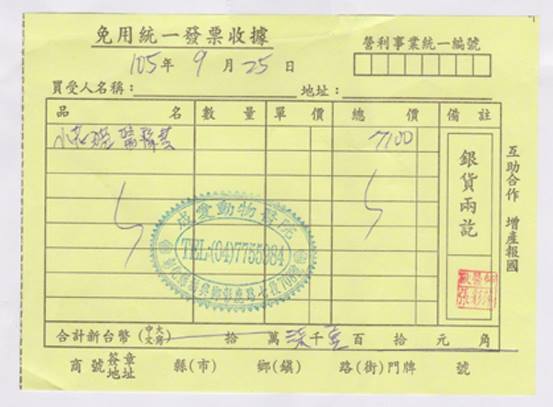 免用統一發票收據
105年9月25日
營利事業統一編號
買受人名稱： 地址：
品名 數量 單價 總價 備註
7100
銀貨兩訖
互助合作 增產報國
成愛動物醫院
TEL:(04)7755984
合計新台幣(中文大寫) 拾 萬 柒千壹百 拾 元 角
商號簽章地址 縣(市) 鄉(鎮) 路(街)門牌 號